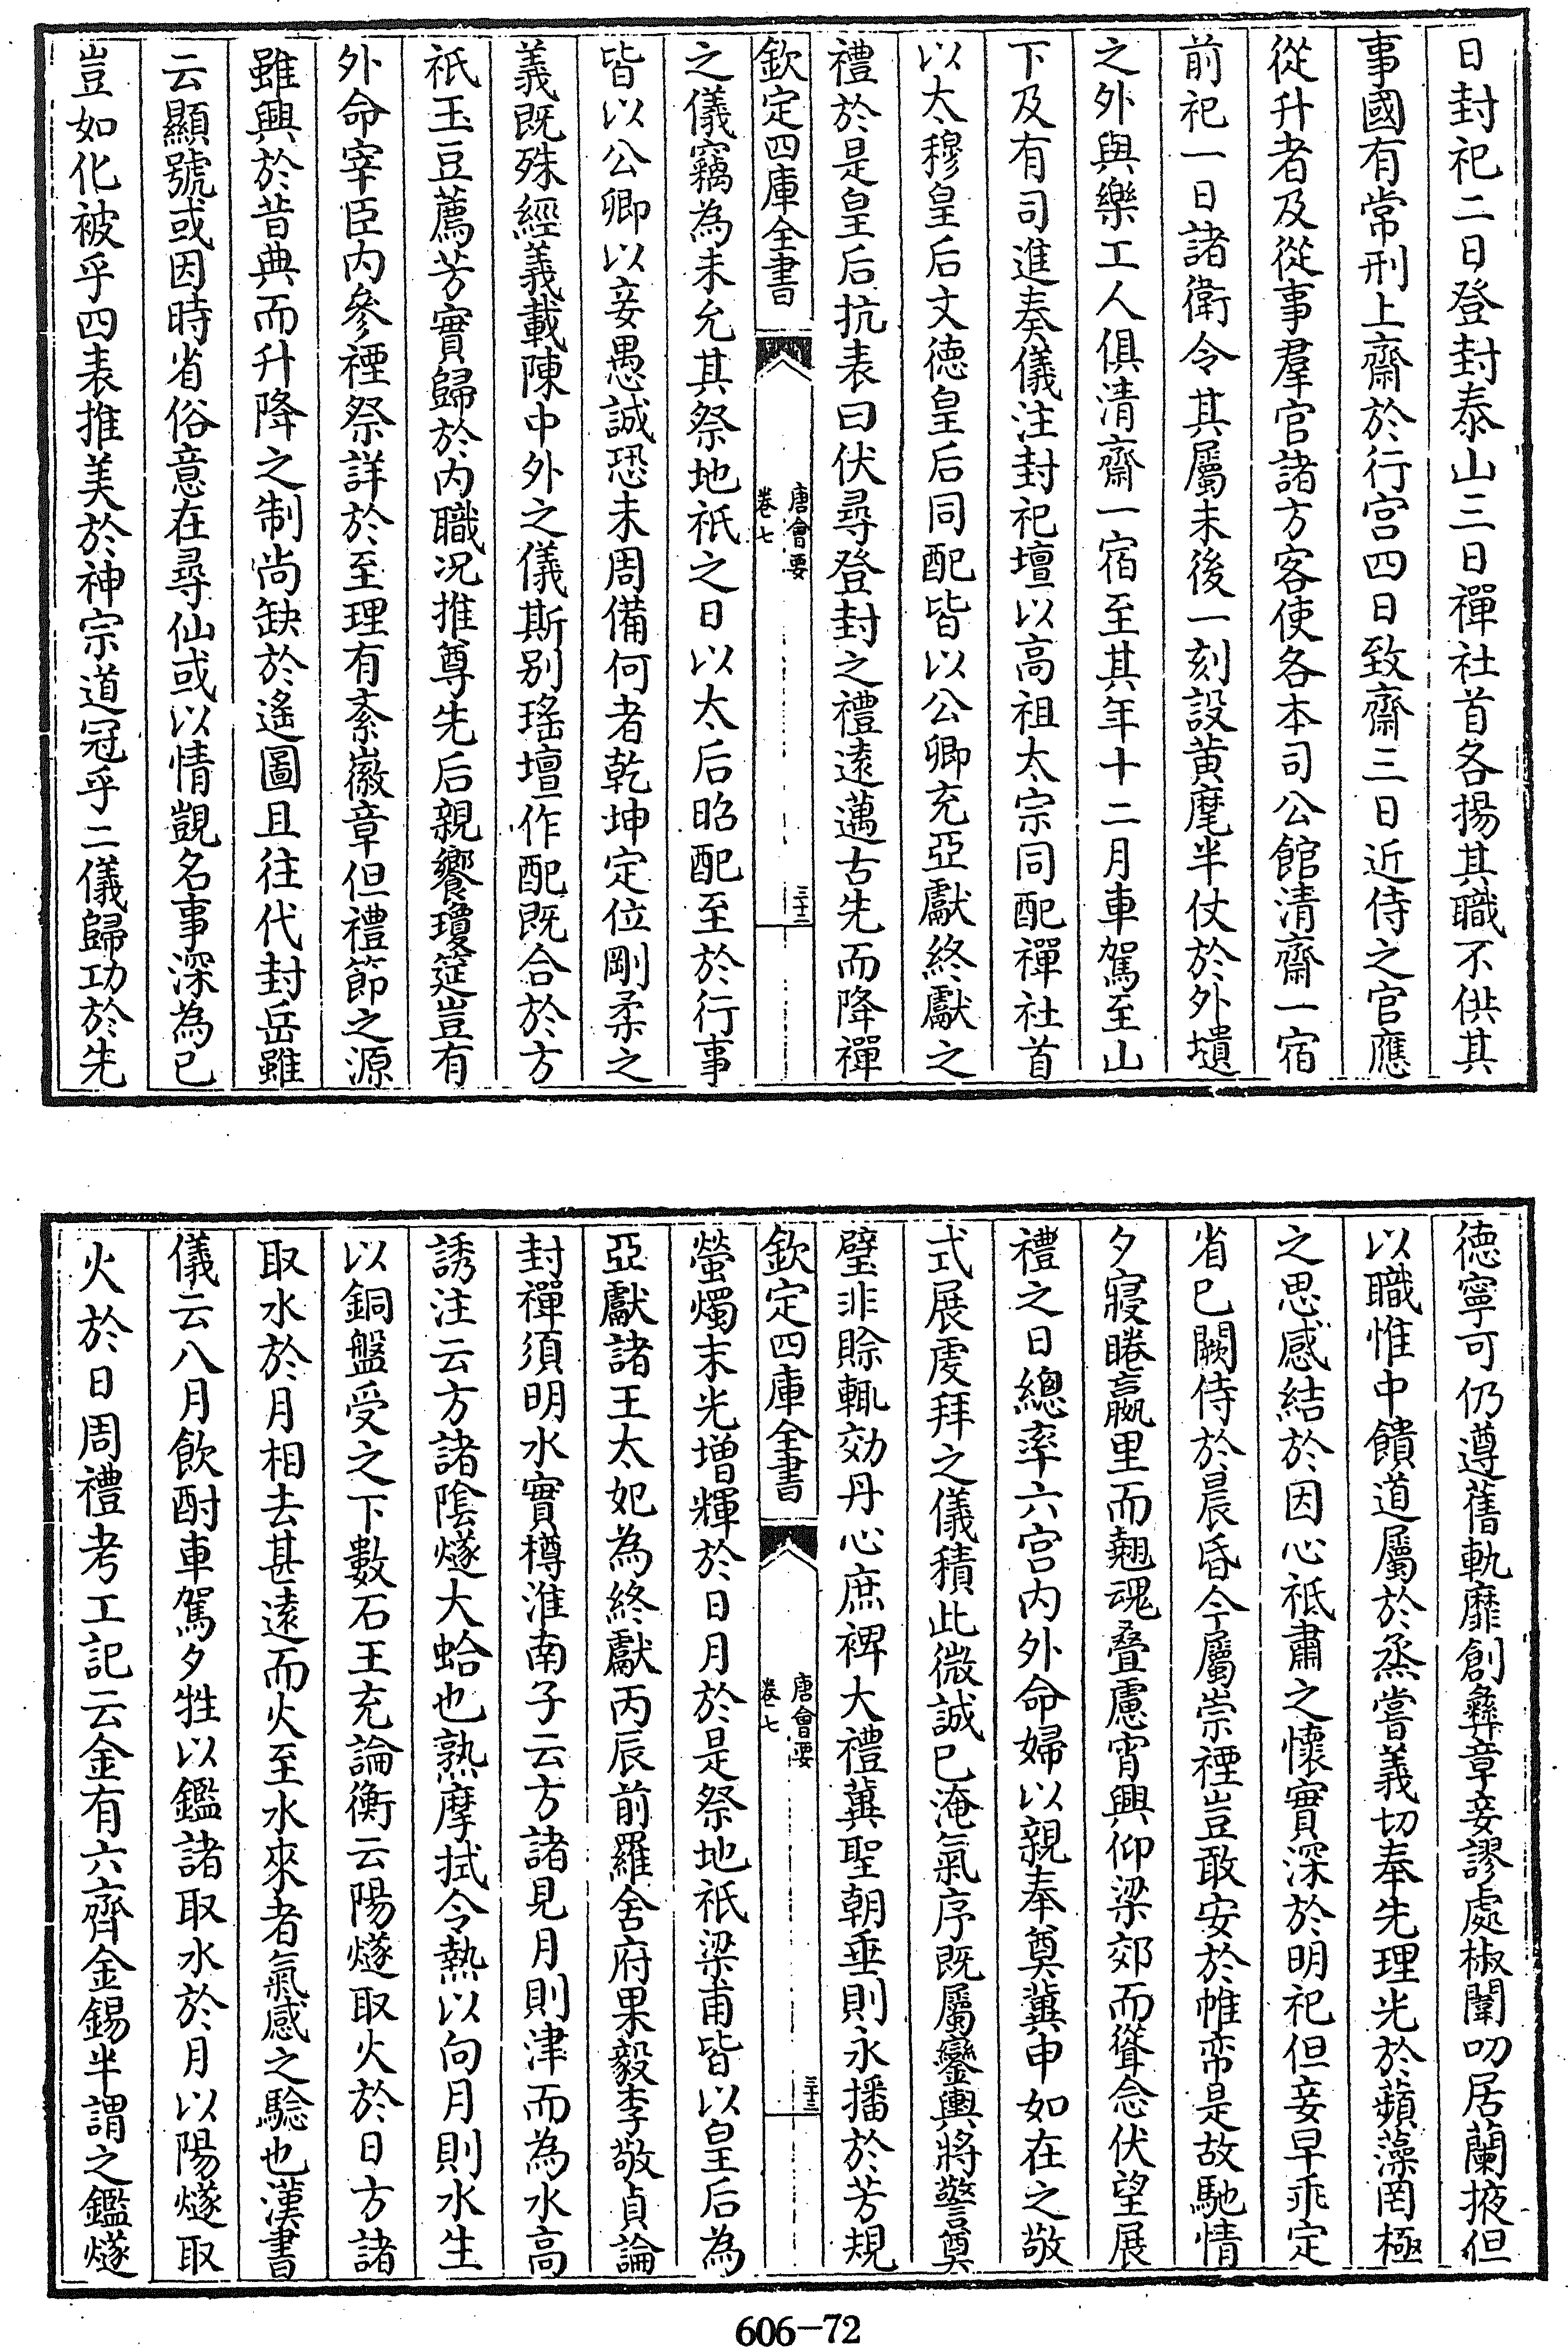 日封祀二日登封泰山三日禪社首各揚其職不供其
事國有常刑上齋於行宫四日致齋三日近侍之官應
從升者及從事羣官諸方客使各本司公館清齋一宿
前祀一日諸衛令其屬未後一刻設黄麾半仗於外壝
之外與樂工人俱清齋一宿至其年十二月車駕至山
下及有司進奏儀注封祀壇以高祖太宗同配禪社首
以太穆皇后文徳皇后同配皆以公卿充亞獻終獻之
禮於是皇后抗表曰伏尋登封之禮逺邁古先而降禪
欽定四庫全書
唐會要
卷七
三十二
之儀竊為未允其祭地祇之日以太后昭配至於行事
皆以公卿以妾愚誠恐未周備何者乾坤定位剛柔之
義既殊經義載陳中外之儀斯别瑤壇作配既合於方
祇玉豆薦芳實歸於内職况推尊先后親饗瓊筵豈有
外命宰臣内參禋祭詳於至理有紊徽章但禮節之源
雖興於昔典而升降之制尚缺於遙圖且往代封岳雖
云顯號或因時省俗意在尋仙或以情覬名事深為已
豈如化被乎四表推美於神宗道冠乎二儀歸功於先
德寧可仍遵舊軌靡創彝章妾謬處椒闈叨居蘭掖但
以職惟中饋道屬於烝嘗義切奉先理光於蘋藻罔極
之思感結於因心祇肅之懷實深於明祀但妾早乖定
省已闕侍於晨昏今屬崇禋豈敢安於帷帟是故馳情
夕寢睠嬴里而翹魂疊慮宵興仰梁郊而聳念伏望展
禮之日總率六宫内外命婦以親奉奠冀申如在之敬
式展虔拜之儀積此微誠已淹氣序既屬鑾輿將警奠
璧非賒輒効丹心庶裨大禮冀聖朝垂則永播於芳規
欽定四庫全書
唐會要
卷七
三十三
螢燭末光増輝於日月於是祭地祇梁甫皆以皇后為
亞獻諸王太妃為終獻丙辰前羅舍府果毅李敬貞論
封禪須明水實樽淮南子云方諸見月則津而為水高
誘注云方諸陰燧大蛤也熟摩拭令熱以向月則水生
以銅盤受之下數石王充論衡云陽燧取火於日方諸
取水於月相去甚逺而火至水來者氣感之騐也漢書
儀云八月飲酎車駕夕牲以鑑諸取水於月以陽燧取
火於日周禮考工記云金有六齊金錫半謂之鑑燧
606-72